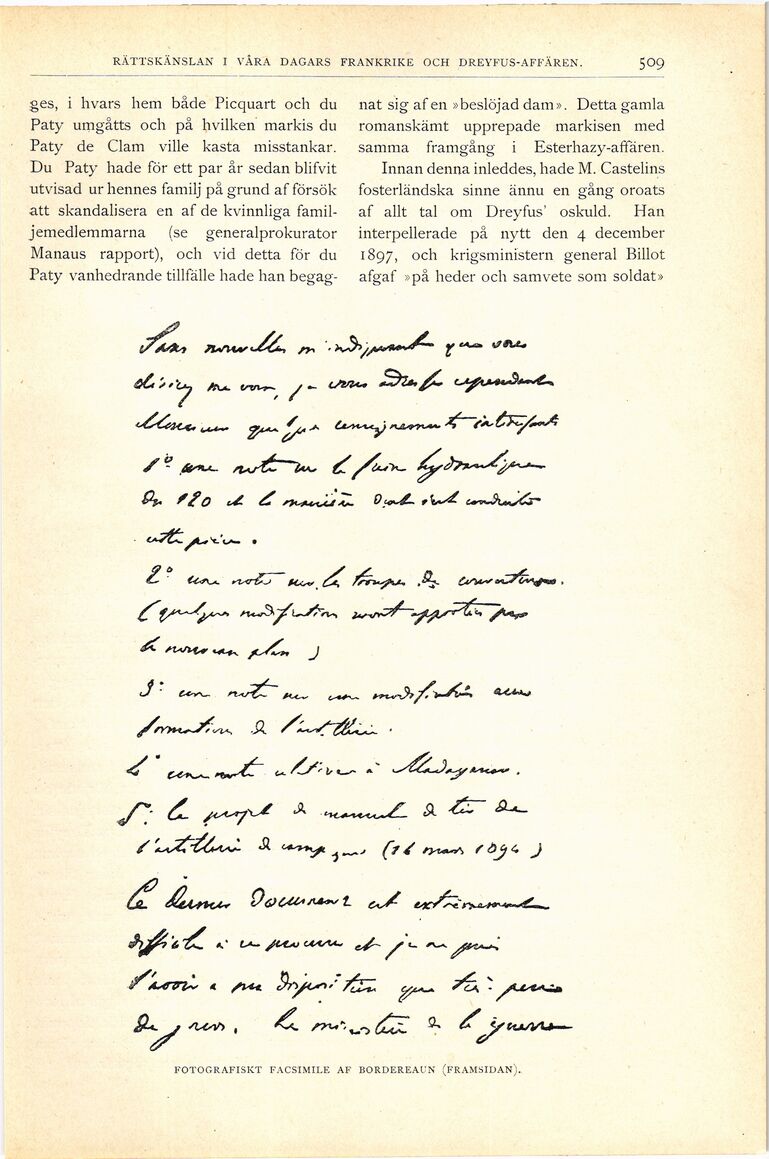 RÄTTSKÄNSLAN I VÅRA DAGARS FRANKRIKE OCH DREYFUS-AFFÄREN. 509
ges, i hvars hem både Picquart och du
Paty umgåtts och på hvilken markis du
Paty de Clam ville kasta misstankar.
Du Paty hade för ett par år sedan blifvit
utvisad ur hennes familj på grund af försök
att skandalisera en af de kvinnliga famil-
jemedlemmarna (se generalprokurator
Manaus rapport), och vid detta för du
Paty vanhedrande tillfälle hade han begag-
nat sig af en »beslöjad dam». Detta gamla
romanskämt upprepade markisen med
samma framgång i Esterhazy-affären.
Innan denna inleddes, hade M. Castelins
fosterländska sinne ännu en gång oroats
af allt tal om Dreyfus' oskuld. Han
interpellerade på nytt den 4 december
1897, och krigsministern general Billot
afgaf »på heder och samvete som soldat»
Sans nouvelles m'indiquant que vous
désirez me voir, je vous adresse cependant
Monsieur quelques renseignements intéressants
1º une note sur le frein hydraulique
du 120 et la manière dont s'est conduite
cette pièce.
2º une note sur les troupes de couverture.
(quelques modifications seront apportées par
le nouveau plan)
3º une note sur une modification aux
formations de l'artillerie.
4º une note relative à Madagascar.
5º le projet de manuel de tir de
l'artillerie de campagne (14 mars 1894)
Ce dernier document est extrêmement
difficile à se procurer et je ne puis
l'avoir à ma disposition que très peu
de jours. Le ministère de la guerre
FOTOGRAFISKT FACSIMILE AF BORDEREAUN (FRAMSIDAN).